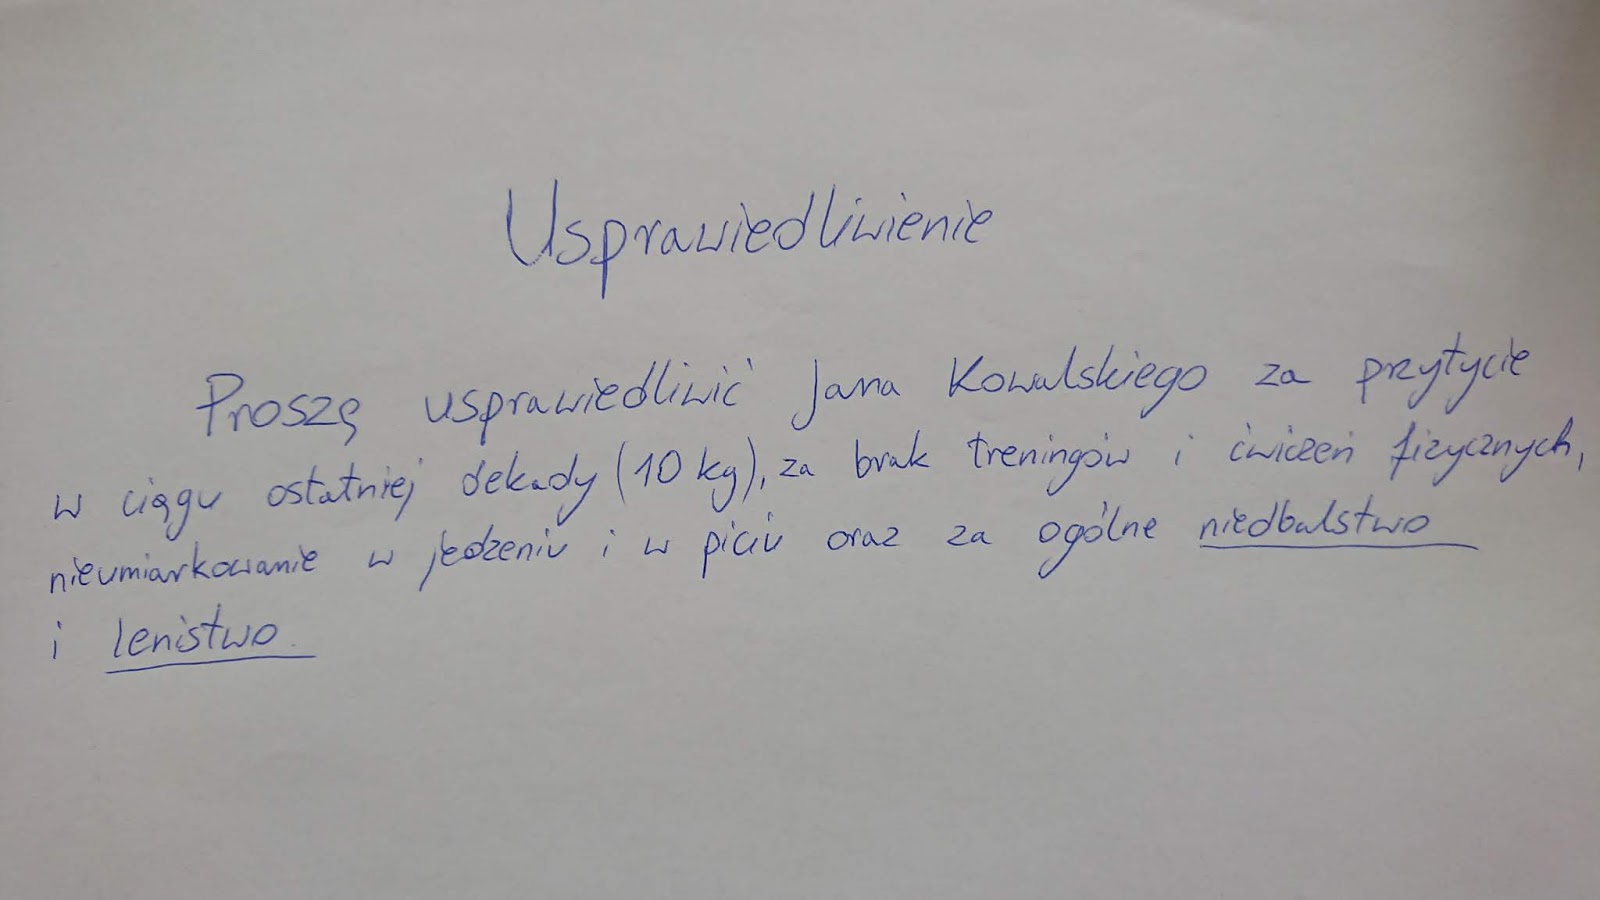 Usprawiedliwienie
Proszę usprawiedliwić Jana Kowalskiego za przytycie
w ciągu ostatniej dekady (10 kg), za brak treningów i ćwiczeń fizycznych,
nieumiarkowanie w jedzeniu i w piciu oraz za ogólne niedbalstwo
i lenistwo.